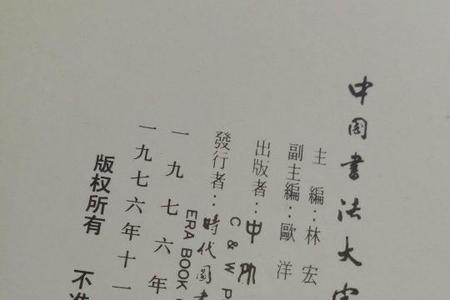 中国书法大字
主 編：林 宏
副主編：歐 洋
出版者：中
C & W P
發行者：時代图书
ERA BOOK C
一 九 七 六 年
一九七六年十一
版权所有 不准